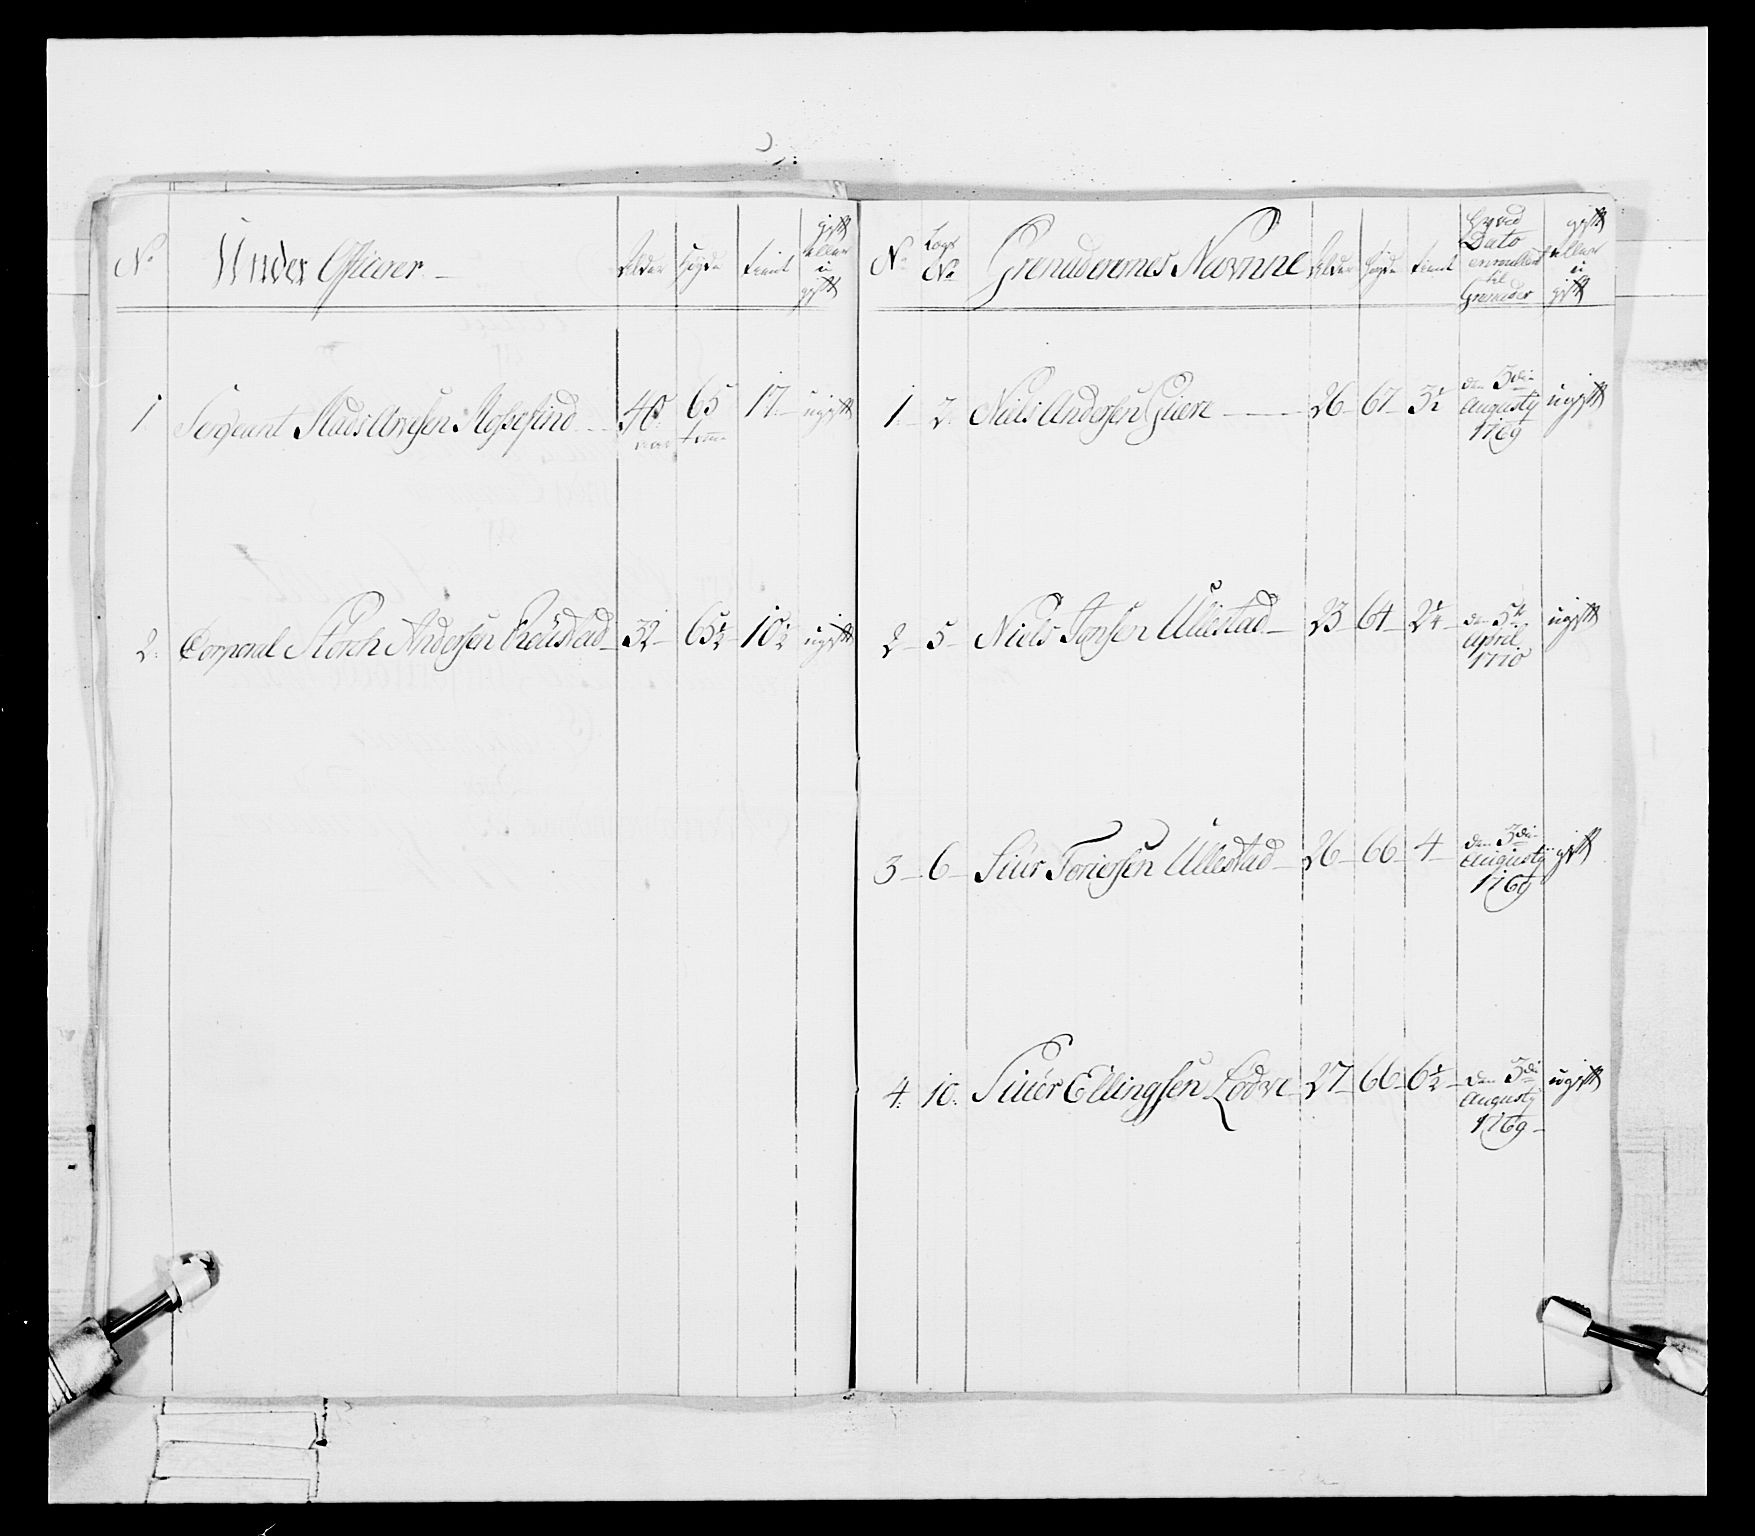 No
Under Officerer
Alder
Høyde
tient
gift
eller
u
gift
1
Sergeant Mads Arvesen Mossefind
40
aar
65
tom
17
ugift
2
Corporal Storch Andersen Røustad
32
65½
10½
ugift
No
Logs
No
Grenaderernes Navnne
Alder
Høyde
tient
Hvad
Dato
enroullert
til
Grenader
gift
eller
u
gift
1
2
Niels Andersen Giere
26
67
3½
den 3die
Augusty
1769
ugift
2
5
Niels Jonsen Ullestad
23
64
2¼
den 5te
april
1770
ugift
3
6
Siur Toriersen Ullestad
26
66
4
den 3die
Augusty
1769
gift
4
10
Siuer Ellingsen Lodve
27
66
6½
den 3die
Augusty
1769
ugift